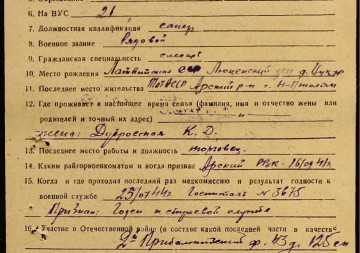 6. На ВУС 21
7. Должностная квалификация сапер
8. Военное звание Рядовой
9. Гражданская специальность слесарь
10. Место рождения Латвийская ССР Люценский уезд д.
11. Последнее место жительства ТатАССР Арский р-н с. Н-
12. Где проживает в настоящее время семья (фамилия, имя и отчество жены или
родителей и точный их адрес)
жена: К. Д.
13. Последнее место работы и должность
14. Каким райгорвоенкоматом и когда призван Арский РВК
15. Когда и где проходил последний раз медкомиссию и результат годности к
военной службе 25/07 44г. Госпиталь 3675
Признан: Годен к строевой службе
16. Участие в Отечественной войне (в составе какой последней части в качестве
2й Прибалтийский ф. 43 д. 125